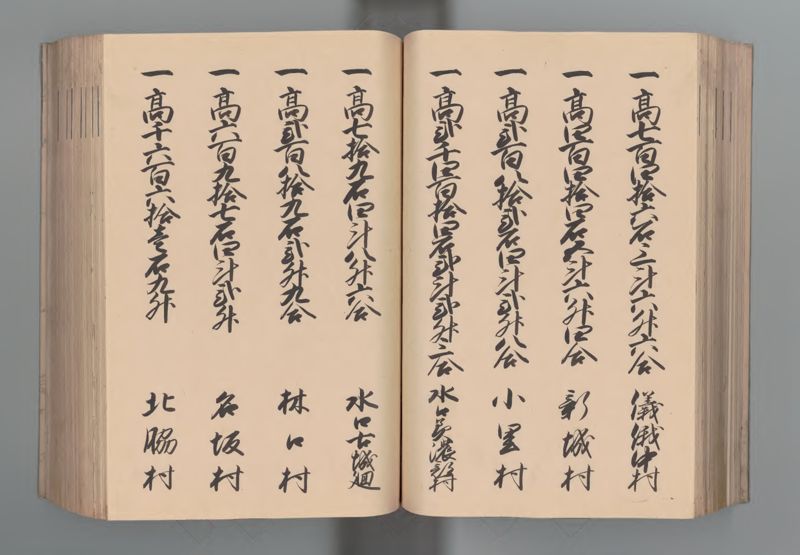 一高七百四拾六石三斗六升六合 儀俄中村
一高四百四拾四石五斗六升四合 新城村
一高弐百八拾弐石四斗弐升八合 小里村
一高弐千四百拾四石弐斗弐升三合 水口美濃部村
一高七拾九石四斗八升六合 水口古城廻
一高弐百八拾九石弐升九合 林口村
一高六百九拾七石四斗弐升 名坂村
一高千六百六拾壱石九升 北脇村